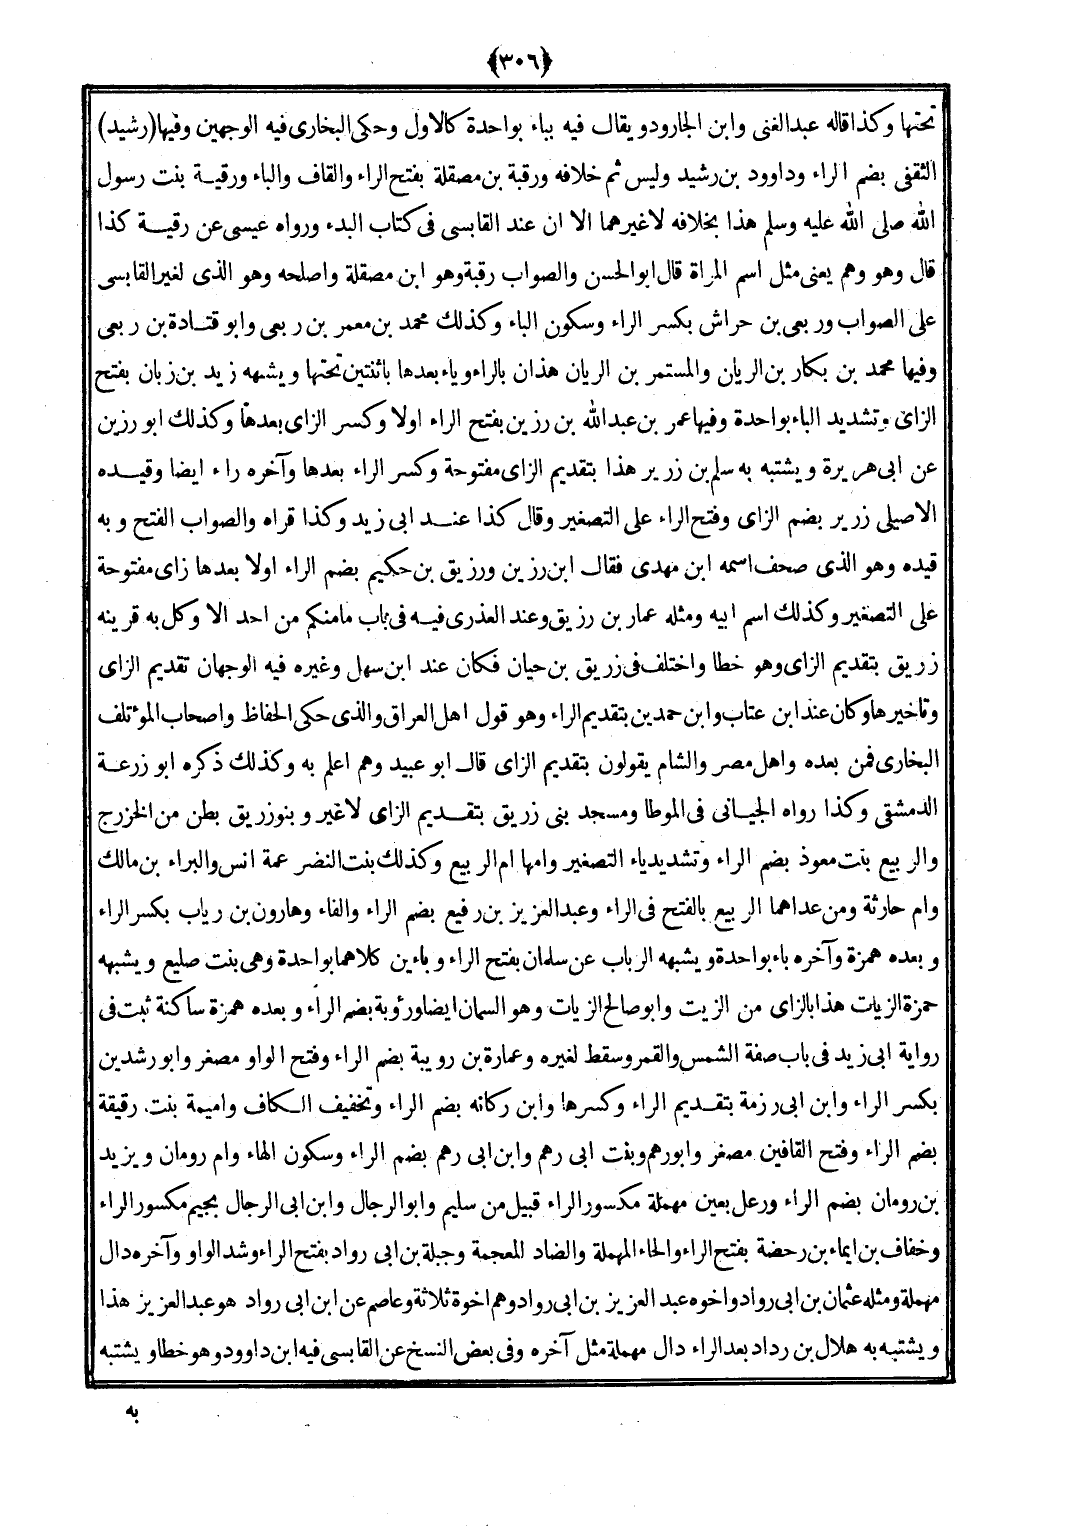 ﴿٣٠٦﴾
تحتها وكذا قاله عبد الغنى وابن الجارود ويقال فيه بباء بواحدة كالاول وحكى البخارى فيه الوجهين وفيها (رشيد)
الثقفى بضم الراء وداوود بن رشيد وليس ثم خلافه ورقبة بن مصقلة بفتح الراء والقاف والباء ورقيـة بنت رسول
الله صلى الله عليه وسلم هذا بخلافه لا غيرهما الا ان عند القابسى فى كتاب البدء ورواه عيسى عن رقيـة كذا
قال وهو وهم يعنى مثل اسم المراة قال ابو الحسن والصواب رقبة وهو ابن مصقلة واصلحه وهو الذى لغير القابسى
على الصواب وربعى بن حراش بكسر الراء وسكون الباء وكذلك محمد بن معمر بن ربعى وابو قتـادة بن ربعى
وفيها محمد بن بكار بن الريان والمستمر بن الريان هذان بالراء وياء بعدها باثنتين تحتها ويشبهه زيد بن زبان بفتح
الزاى وتشديد الباء بواحدة وفيها عمر بن عبد الله بن رزين بفتح الراء اولا وكسر الزاى بعدها وكذلك ابو رزين
عن ابى هريرة ويشتبه به سلم بن زرير هذا بتقديم الزاى مفتوحة وكسر الراء بعدها وآخره راء ايضا وقيـده
الاصيلى زرير بضم الزاى وفتح الراء على التصغير وقال كذا عنـد ابى زيد وكذا قراه والصواب الفتح وبه
قيده وهو الذى صحف اسمه ابن مهدى فقال ابن رزين ورزيق بن حكيم بضم الراء اولا بعدها زاى مفتوحة
على التصغير وكذلك اسم ابيه ومثله عمار بن رزيق وعند العذرى فيـه فى باب ما منكم من احد الا وكل به قرينه
زريق بتقديم الزاى وهو خطا واختلف فى زريق بن حيان فكان عند ابن سهل وغيره فيه الوجهان تقديم الزاى
وتاخيرها وكان عند ابن عتاب وابن حمدين بتقديم الراء وهو قول اهل العراق والذى حكى الحفاظ واصحاب الموتلف
البخارى فمن بعده واهل مصر والشام يقولون بتقديم الزاى قال ابو عبيد وهم اعلم به وكذلك ذكره ابو زرعـة
الدمشقى وكذا رواه الجيـانى فى الموطا ومسجد بنى زريق بتقـديم الزاى لا غير وبنو زريق بطن من الخزرج
والربيع بنت معوذ بضم الراء وتشديد ياء التصغير وامها ام الربيع وكذلك بنت النضر عمة انس والبراء بن مالك
وام حارثة ومن عداهما الربيع بالفتح فى الراء وعبد العزيز بن رفيع بضم الراء والفاء وهارون بن رياب بكسر الراء
وبعده همزة وآخره باء بواحدة ويشبهه الرباب عن سلمان بفتح الراء وباءين كلاهما بواحدة وهى بنت صليع ويشبهه
حمزة الزيات هذا بالزاى من الزيت وابو صالح الزيات وهو السمان ايضا ورُوبة بضم الراء وبعده همزة ساكنة ثبت فى
رواية ابى زيد فى باب صفة الشمس والقمر وسقط لغيره وعمارة بن رويبة بضم الراء وفتح الواو مصغر وابو رشدين
بكسر الراء وابن ابى رزمة بتقـديم الراء وكسرها وابن ركانه بضم الراء وتخفيف الكاف واميمة بنت رقيقة
بضم الراء وفتح القافين مصغر وابو رهم وبنت ابى رهم وابن ابى رهم بضم الراء وسكون الهاء وام رومان ويزيد
بن رومان بضم الراء ورعل بعين مهملة مكسور الراء قبيل من سليم وابو الرجال وابن ابى الرجال بجيم مكسور الراء
وخفاف بن ايماء بن رحضة بفتح الراء والحاء المهملة والضاد المعجمة وجبلة بن ابى رواد بفتح الراء وشد الواو وآخره دال
مهملة ومثله عثمان بن ابى رواد واخوه عبد العزيز بن ابى رواد وهم اخوة ثلاثة وعاصم عن ابن ابى رواد هو عبد العزيز هذا
ويشتبه به هلال بن رداد بعد الراء دال مهملة مثل آخره وفى بعض النسخ عن القابسى فيه ابن داوود وهو خطا ويشتبه
به